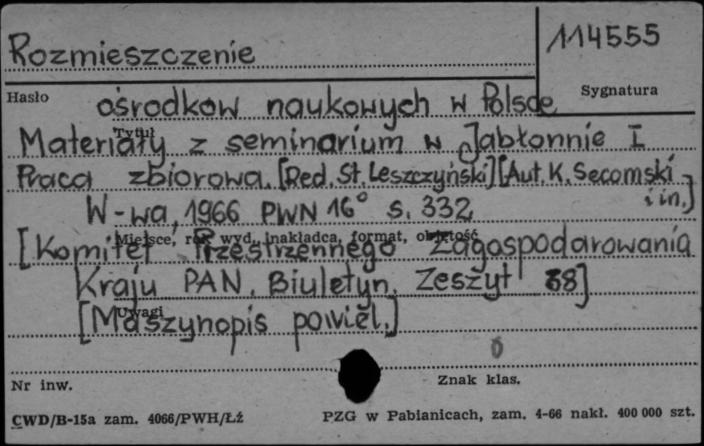 Rozmieszczenie
114555
Hasło
Sygnatura
ośrodków naukowych w Polsce
Tytuł
Materiały z seminarium w Jabłonnie I
Praca zbiorowa. [Red. St. Leszczyński] [Aut. K. Secomski
i in.]
W-wa, 1966 PWN 16° s. 332
Miejsce, rok wyd., nakładca, format, objętość
[Komitet Przestrzennego Zagospodarowania
Kraju PAN. Biuletyn. Zeszyt 38]
Uwagi
[Maszynopis powiel.]
0
Nr inw.
Znak klas.
CWD/B-15a zam. 4066/PWH/Łź
PZG w Pabianicach, zam. 4-66 nakł. 400 000 szt.